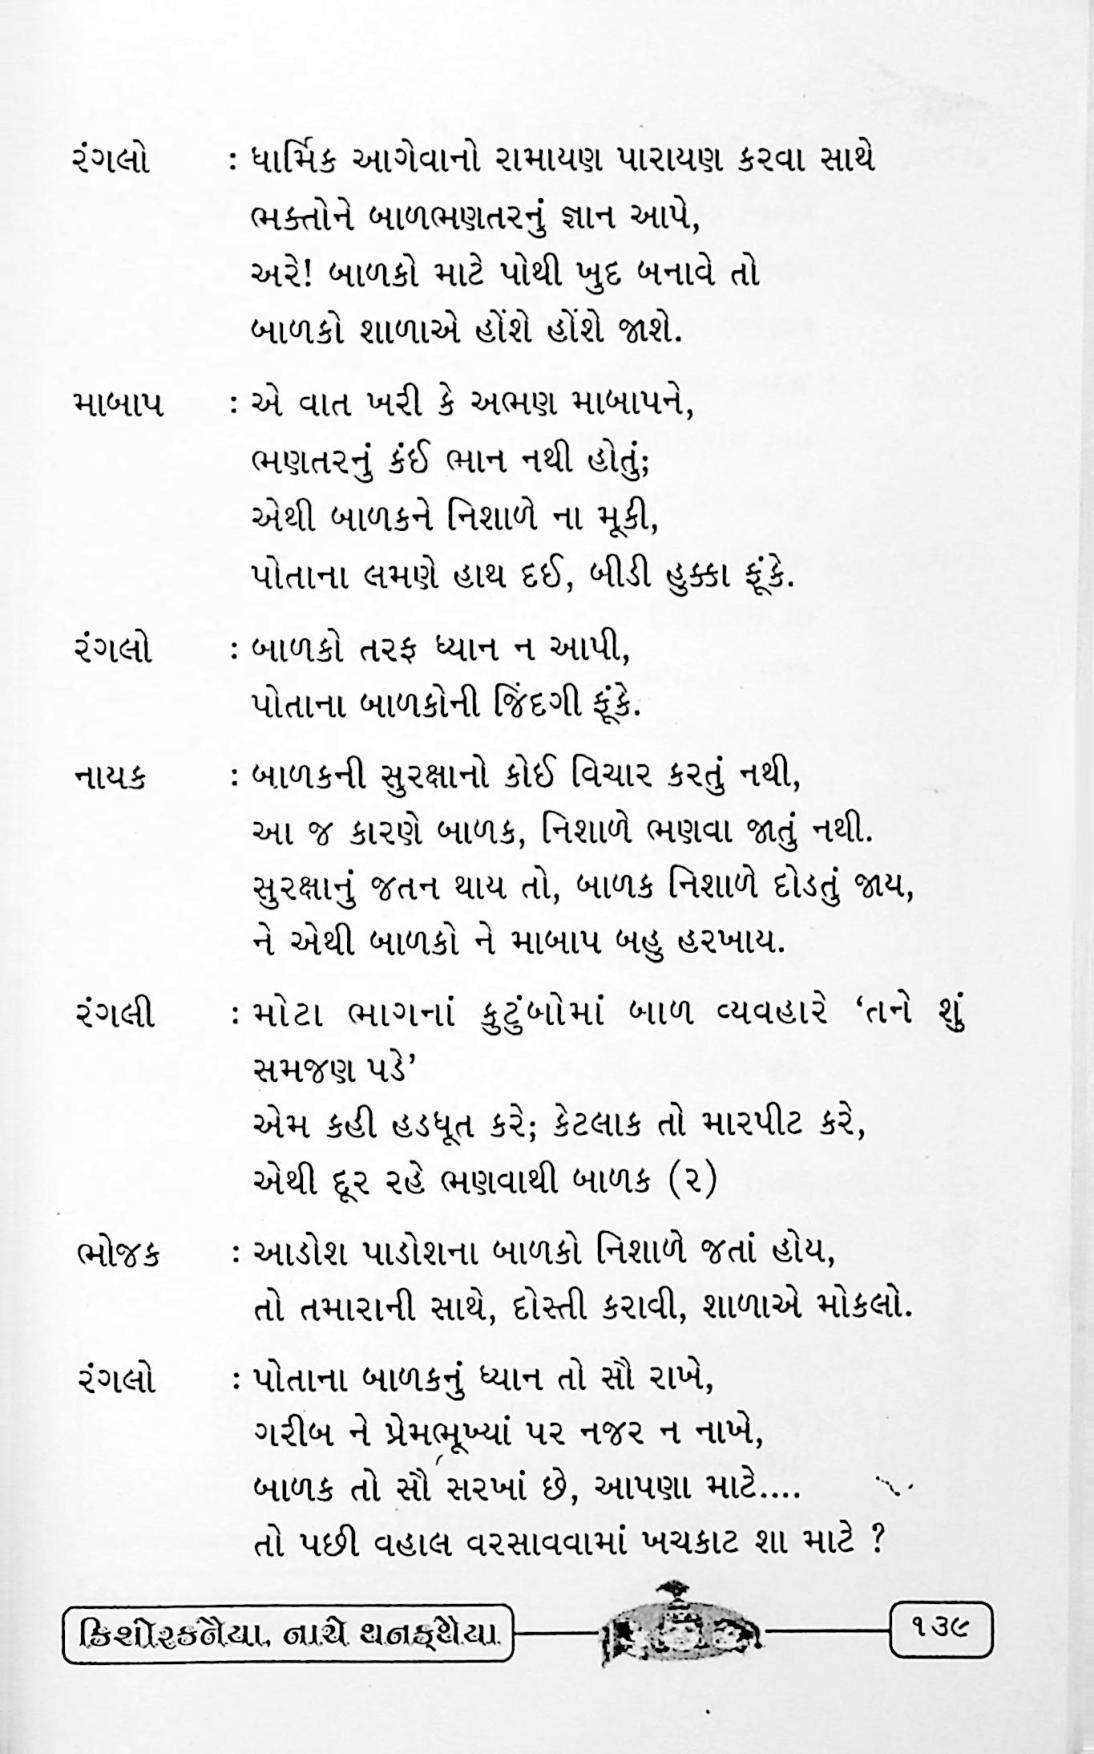 રંગલો : ધાર્મિક આગેવાનો રામાયણ પારાયણ કરવા સાથે
ભક્તોને બાળભણતરનું જ્ઞાન આપે,
અરે! બાળકો માટે પોથી ખુદ બનાવે તો
બાળકો શાળાએ હોંશે હોંશે જાશે.
માબાપ : એ વાત ખરી કે અભણ માબાપને,
ભણતરનું કંઈ ભાન નથી હોતું;
એથી બાળકને નિશાળે ના મૂકી,
પોતાના લમણે હાથ દઈ, બીડી હુક્કા ફૂંકે.
રંગલો : બાળકો તરફ ધ્યાન ન આપી,
પોતાના બાળકોની જિંદગી ફૂંકે.
નાયક : બાળકની સુરક્ષાનો કોઈ વિચાર કરતું નથી,
આ જ કારણે બાળક, નિશાળે ભણવા જાતું નથી.
સુરક્ષાનું જતન થાય તો, બાળક નિશાળે દોડતું જાય,
ને એથી બાળકો ને માબાપ બહુ હરખાય.
રંગલી : મોટા ભાગનાં કુટુંબોમાં બાળ વ્યવહારે ‘તને શું
સમજણ પડે’
એમ કહી હડધૂત કરે; કેટલાક તો મારપીટ કરે,
એથી દૂર રહે ભણવાથી બાળક (૨)
ભોજક : આડોશ પાડોશના બાળકો નિશાળે જતાં હોય,
તો તમારાની સાથે, દોસ્તી કરાવી, શાળાએ મોકલો.
રંગલો : પોતાના બાળકનું ધ્યાન તો સૌ રાખે,
ગરીબ ને પ્રેમભૂખ્યાં પર નજર ન નાખે,
બાળક તો સૌ સરખાં છે, આપણા માટે....
તો પછી વહાલ વરસાવવામાં ખચકાટ શા માટે ?
કિશોરકનૈયા, નાચે થનકથૈયા ૧૩૯